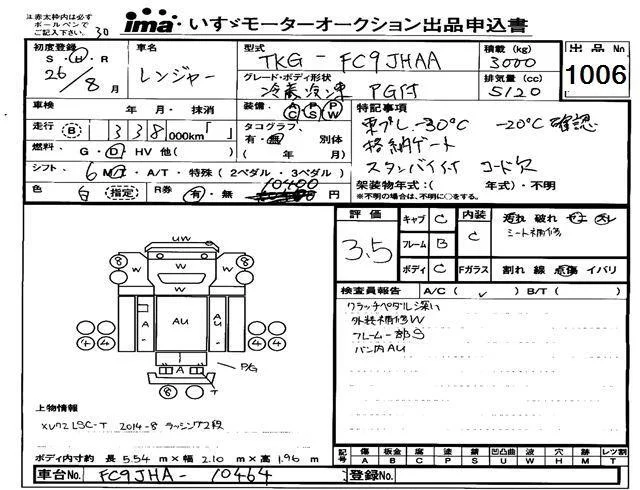 注 赤太枠内は必ずボールペンでご記入下さい。 30
ima いすゞモーターオークション出品申込書
初度登録 S・H・R 26/8月
車名 レンジャー
型式 TKG-FC9JHAA
積載(kg) 3000
出品No 1006
グレード・ボディ形状 冷蔵冷凍 PG付
排気量(cc) 5120
車検 年 月・ 抹消
装備・ AC・PS・PW
特記事項
走行 B 1 3 3 8 000km「 」
タコグラフ 有・無 別体 ( 年 月)
東プレ -30℃ -20℃確認
格納ゲート
燃料・ G・D・HV 他( )
シフト・ 6 MT・A/T・特殊(2ペダル・3ペダル)
スタンバイ付 コード欠
色 白 指定・ R券 有・無 10400 円
架装物年式:( 年式)・不明
※不明の場合は、不明に○をする。
評価 3.5
キャブ C
フレーム B
ボディ C
内装 C
汚れ 破れ
シート補修
Fガラス 割れ 線 点傷 イバリ
検査員報告 A/C( ✓ ) B/T( )
クラッチペダル深い
外装補修W
フレーム一部S
バン内AU
UW
8 W 8
W W
A AU A
4 4 4 4
A A PG
8 T
上物情報
XV72LSC-T 2014-8 ラッシング2段
ボディ内寸約 長 5.54 m×幅 2.10 m×高 1.96 m
記号 傷 A 板金 B 腐 C 塗 P 錆 S 凹凸曲 U 波 W 穴 H 跡 M レツ割 T
車台No. FC9JHA-10464 登録No.